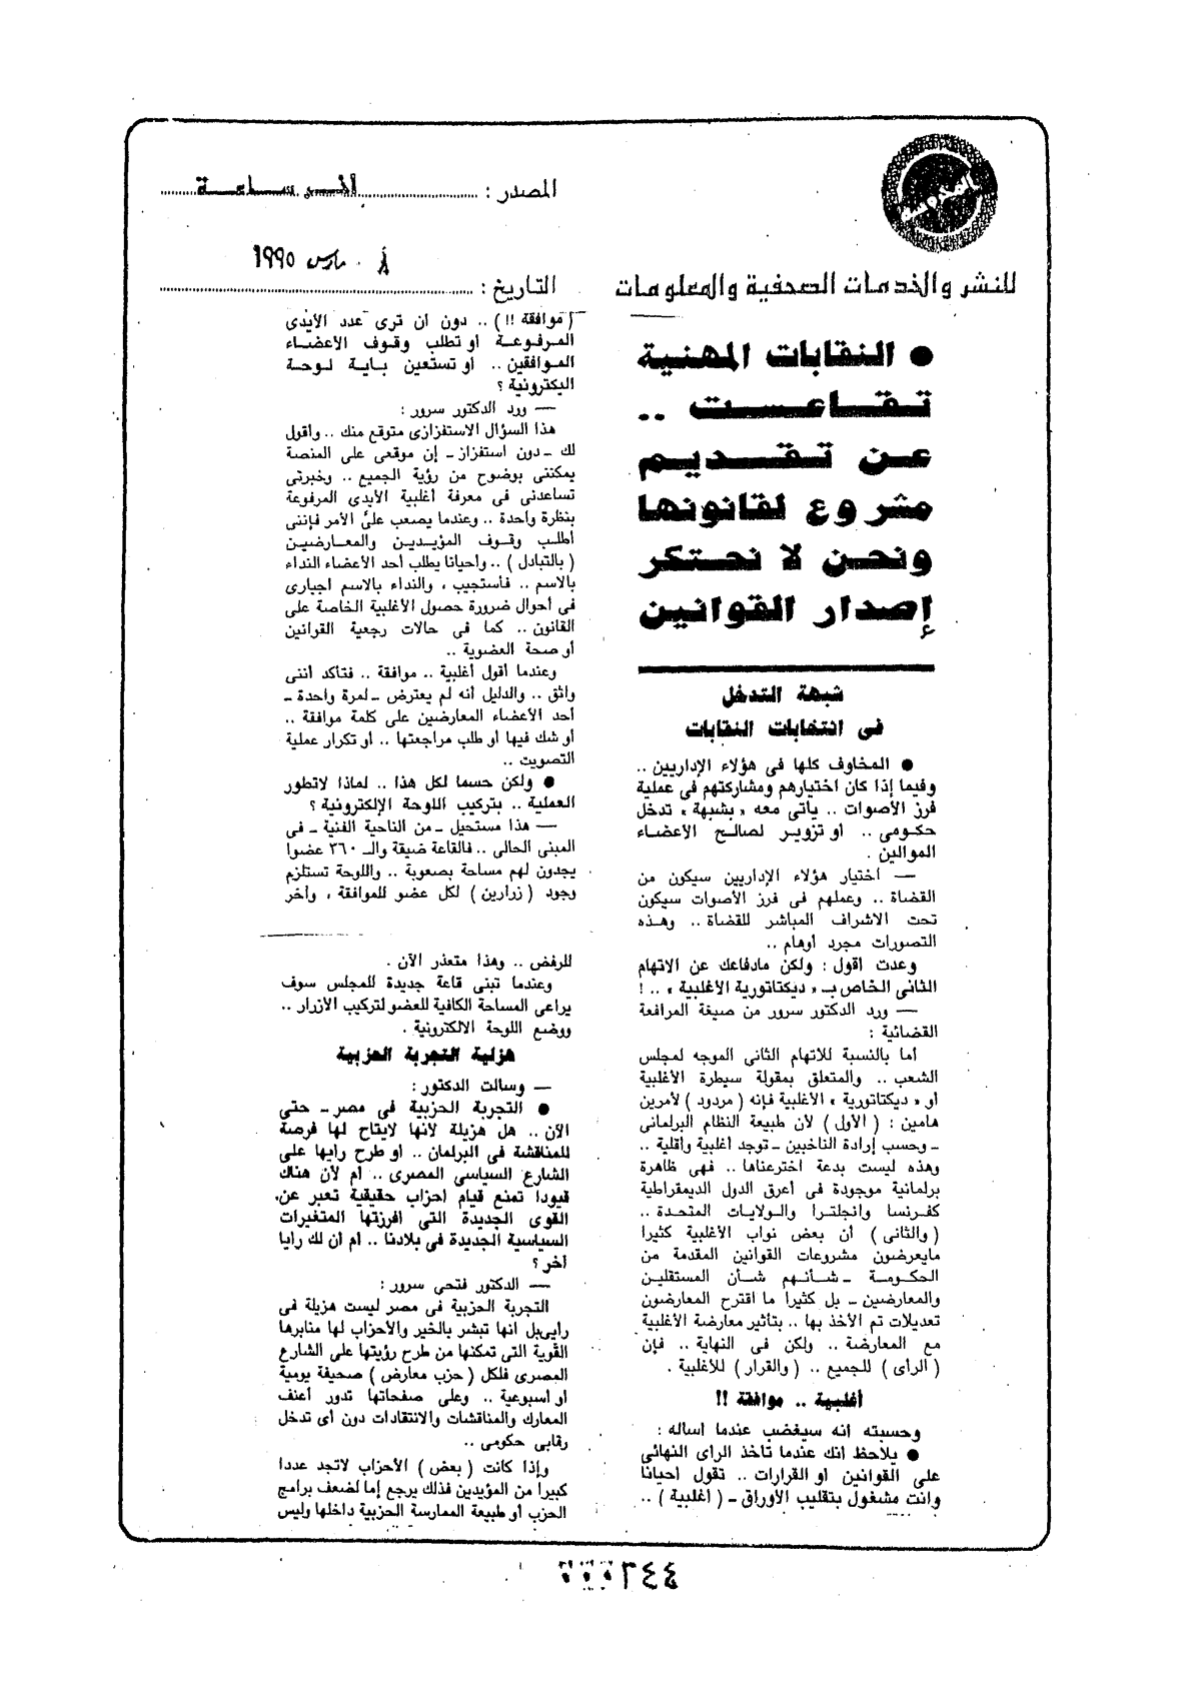 المصدر : آخر ساعة
للنشر والخدمات الصحفية والمعلومات
التاريخ : ٨ مارس ١٩٩٥
● النقابات المهنية
تقاعست ..
عن تقديم
مشروع لقانونها
ونحن لا نحتكر
إصدار القوانين
شبهة التدخل
فى انتخابات النقابات
● المخاوف كلها فى هؤلاء الإداريين ..
وفيما إذا كان اختيارهم ومشاركتهم فى عملية
فرز الأصوات .. يأتى معه « بشبهة » تدخل
حكومى .. أو تزوير لصالح الأعضاء
الموالين .
— اختيار هؤلاء الإداريين سيكون من
القضاة .. وعملهم فى فرز الأصوات سيكون
تحت الاشراف المباشر للقضاة .. وهذه
التصورات مجرد أوهام ..
وعدت اقول : ولكن مادفاعك عن الاتهام
الثانى الخاص بـ « ديكتاتورية الأغلبية » .. !
— ورد الدكتور سرور من صيغة المرافعة
القضائية :
أما بالنسبة للاتهام الثانى الموجه لمجلس
الشعب .. والمتعلق بمقولة سيطرة الأغلبية
أو « ديكتاتورية » الأغلبية فإنه ( مردود ) لأمرين
هامين : ( الأول ) لأن طبيعة النظام البرلمانى
ـ وحسب إرادة الناخبين ـ توجد أغلبية وأقلية ..
وهذه ليست بدعة اخترعناها .. فهى ظاهرة
برلمانية موجودة فى أعرق الدول الديمقراطية
كفرنسا وانجلترا والولايات المتحدة ..
( والثانى ) أن بعض نواب الأغلبية كثيرا
مايعرضون مشروعات القوانين المقدمة من
الحكومة ـ شأنهم شأن المستقلين
والمعارضين ـ بل كثيرا ما اقترح المعارضون
تعديلات تم الأخذ بها .. بتأثير معارضة الأغلبية
مع المعارضة .. ولكن فى النهاية .. فإن
( الرأى ) للجميع .. ( والقرار ) للأغلبية .
أغلبية .. موافقة !!
وحسبته انه سيغضب عندما اساله :
● يلاحظ انك عندما تاخذ الراى النهائى
على القوانين او القرارات .. تقول احيانا
وانت مشغول بتقليب الأوراق ـ ( اغلبية ) ..
( موافقة !! ) .. دون ان ترى عدد الأيدى
المرفوعة او تطلب وقوف الأعضاء
الموافقين .. او تستعين باية لوحة
اليكترونية ؟
— ورد الدكتور سرور :
هذا السؤال الاستفزازى متوقع منك .. وأقول
لك ـ دون استفزاز ـ إن موقعى على المنصة
يمكننى بوضوح من رؤية الجميع .. وخبرتى
تساعدنى فى معرفة أغلبية الأيدى المرفوعة
بنظرة واحدة .. وعندما يصعب علىّ الأمر فإننى
أطلب وقوف المؤيدين والمعارضين
( بالتبادل ) .. وأحيانا يطلب أحد الأعضاء النداء
بالاسم .. فأستجيب ، والنداء بالاسم اجبارى
فى أحوال ضرورة حصول الأغلبية الخاصة على
القانون .. كما فى حالات رجعية القوانين
أو صحة العضوية ..
وعندما أقول أغلبية .. موافقة .. فتأكد أننى
واثق .. والدليل أنه لم يعترض ـ لمرة واحدة ـ
أحد الأعضاء المعارضين على كلمة موافقة ..
أو شك فيها أو طلب مراجعتها .. أو تكرار عملية
التصويت ..
● ولكن حسما لكل هذا .. لماذا لاتطور
العملية .. بتركيب اللوحة الإلكترونية ؟
— هذا مستحيل ـ من الناحية الفنية ـ فى
المبنى الحالى .. فالقاعة ضيقة والـ ٣٦٠ عضوا
يجدون لهم مساحة بصعوبة .. واللوحة تستلزم
وجود ( زرارين ) لكل عضو للموافقة ، وآخر
للرفض .. وهذا متعذر الآن .
وعندما تبنى قاعة جديدة للمجلس سوف
يراعى المساحة الكافية للعضو لتركيب الأزرار ..
ووضع اللوحة الالكترونية .
هزلية التجربة الحزبية
— وسالت الدكتور :
● التجربة الحزبية فى مصر ـ حتى
الآن .. هل هزيلة لأنها لايتاح لها فرصة
للمناقشة فى البرلمان .. او طرح رايها على
الشارع السياسى المصرى .. ام لأن هناك
قيودا تمنع قيام احزاب حقيقية تعبر عن
القوى الجديدة التى افرزتها المتغيرات
السياسية الجديدة فى بلادنا .. ام ان لك رايا
آخر ؟
— الدكتور فتحى سرور :
التجربة الحزبية فى مصر ليست هزيلة فى
رأيى بل انها تبشر بالخير والأحزاب لها منابرها
القوية التى تمكنها من طرح رؤيتها على الشارع
المصرى فلكل ( حزب معارض ) صحيفة يومية
أو أسبوعية .. وعلى صفحاتها تدور أعنف
المعارك والمناقشات والانتقادات دون أى تدخل
رقابى حكومى ..
وإذا كانت ( بعض ) الأحزاب لاتجد عددا
كبيرا من المؤيدين فذلك يرجع إما لضعف برامج
الحزب أو طبيعة الممارسة الحزبية داخلها وليس
٣٤٤